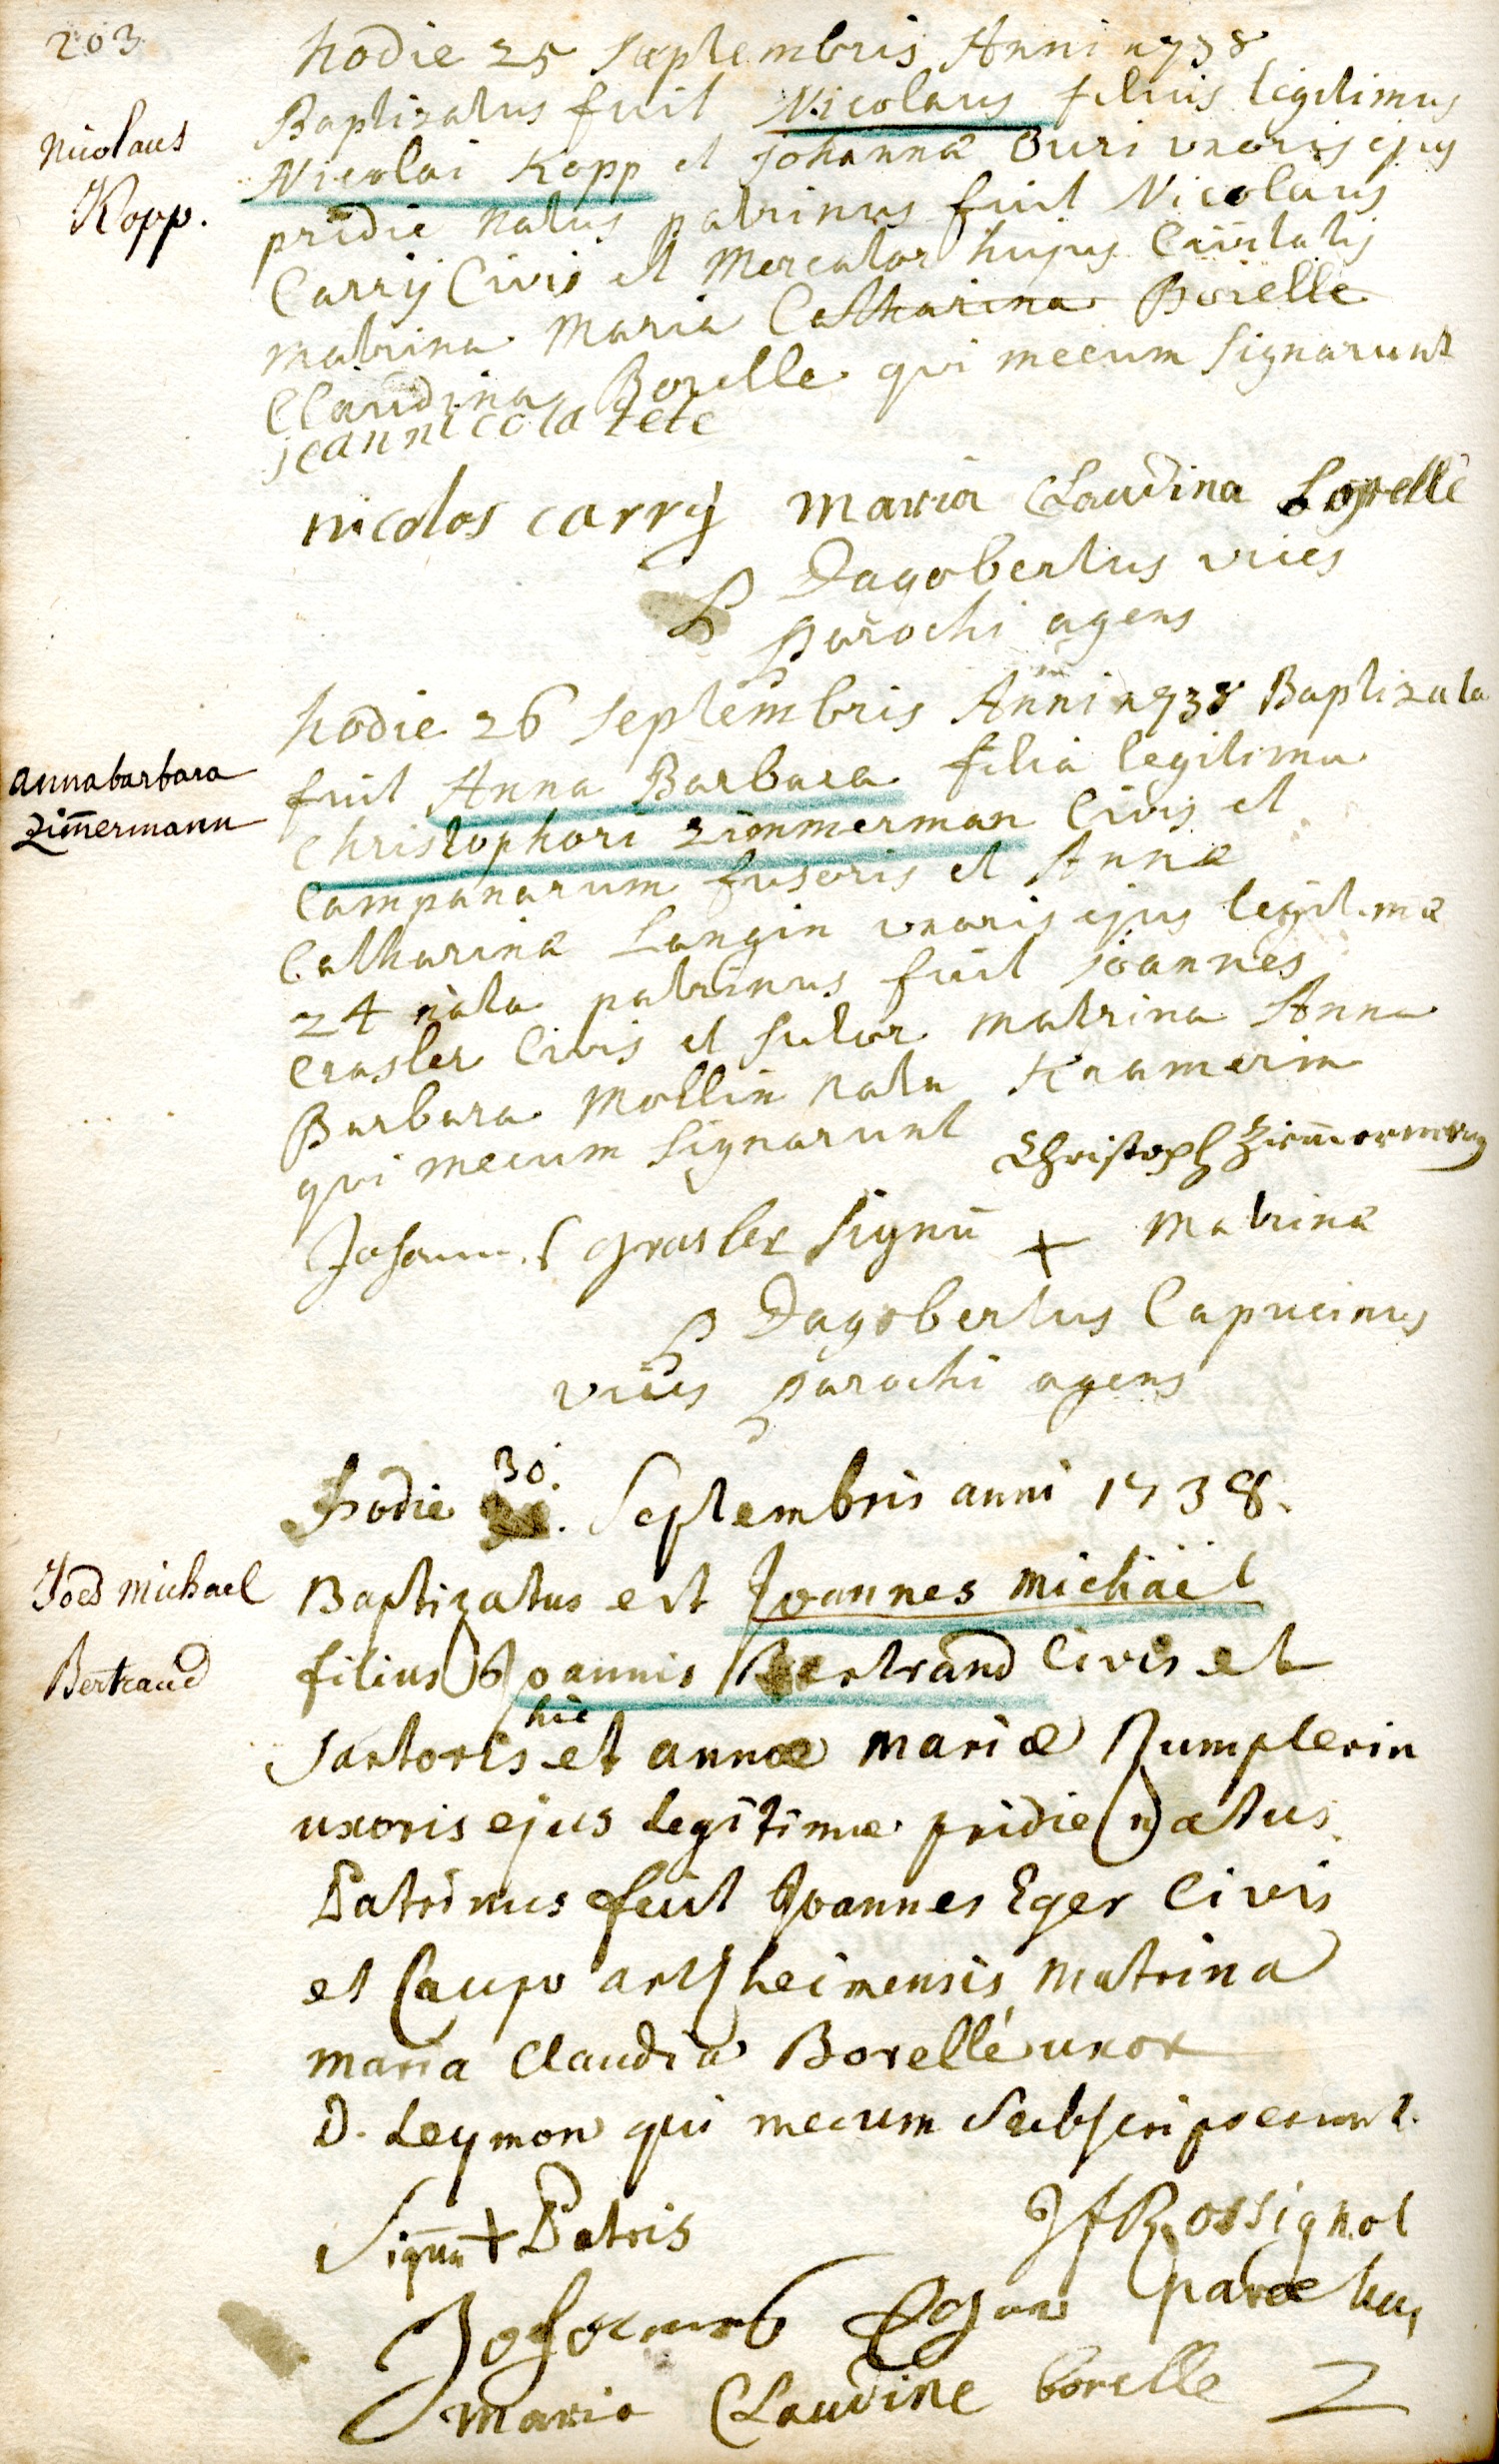 203
hodie 25 septembris Anni 1738
Nicolaus
Kopp.
Baptizatus fuit Nicolaus filius legitimus
Nicolai Kopp et Johannæ Buri uxoris ejus
pridie natus patrinus fuit Nicolaus
Carrÿ Civis et Mercator hujus Civitatis
matrina Maria Catharina Borelle
Claudina Borelle qui mecum signarunt
jean nicola tete
nicolos carrÿ Maria Claudina Borelle
P Dagobertus vices
Parochi agens
hodie 26 septembris Anni 1738 Baptizata
annabarbara
Zim̄ermann
fuit Anna Barbara filia legitima
Christophori Zimmerman Civis et
Campanarum fusoris et Annæ
Catharinæ Langin uxoris ejus legitimæ
24 nata patrinus fuit joannes
Crasler Civis et sutor matrina Anna
Barbara Mollin nata Kramerin
qui mecum signarunt Christoph Zim̄erman
Johannes grasler signū + Matrinæ
P Dagobertus Capucinus
vices parochi agens
hodie 30. Septembris anni 1738.
Joēs Michael
Bertrand
Baptizatus est Joannes Michäel
filius Joannis Bertrand Civis et
Sartoris hic et annæ mariæ Rumplerin
uxoris ejus legitimæ pridie natus.
Patrinus fuit Joannes Eger Civis
et Caupo artzheimensis matrina
maria Claudia Borellé uxor
D. Leymon qui mecum Subscripserunt.
Signū + Patris
JfRossignol
parochus
Johannes Eger
Maria Claudine borelle